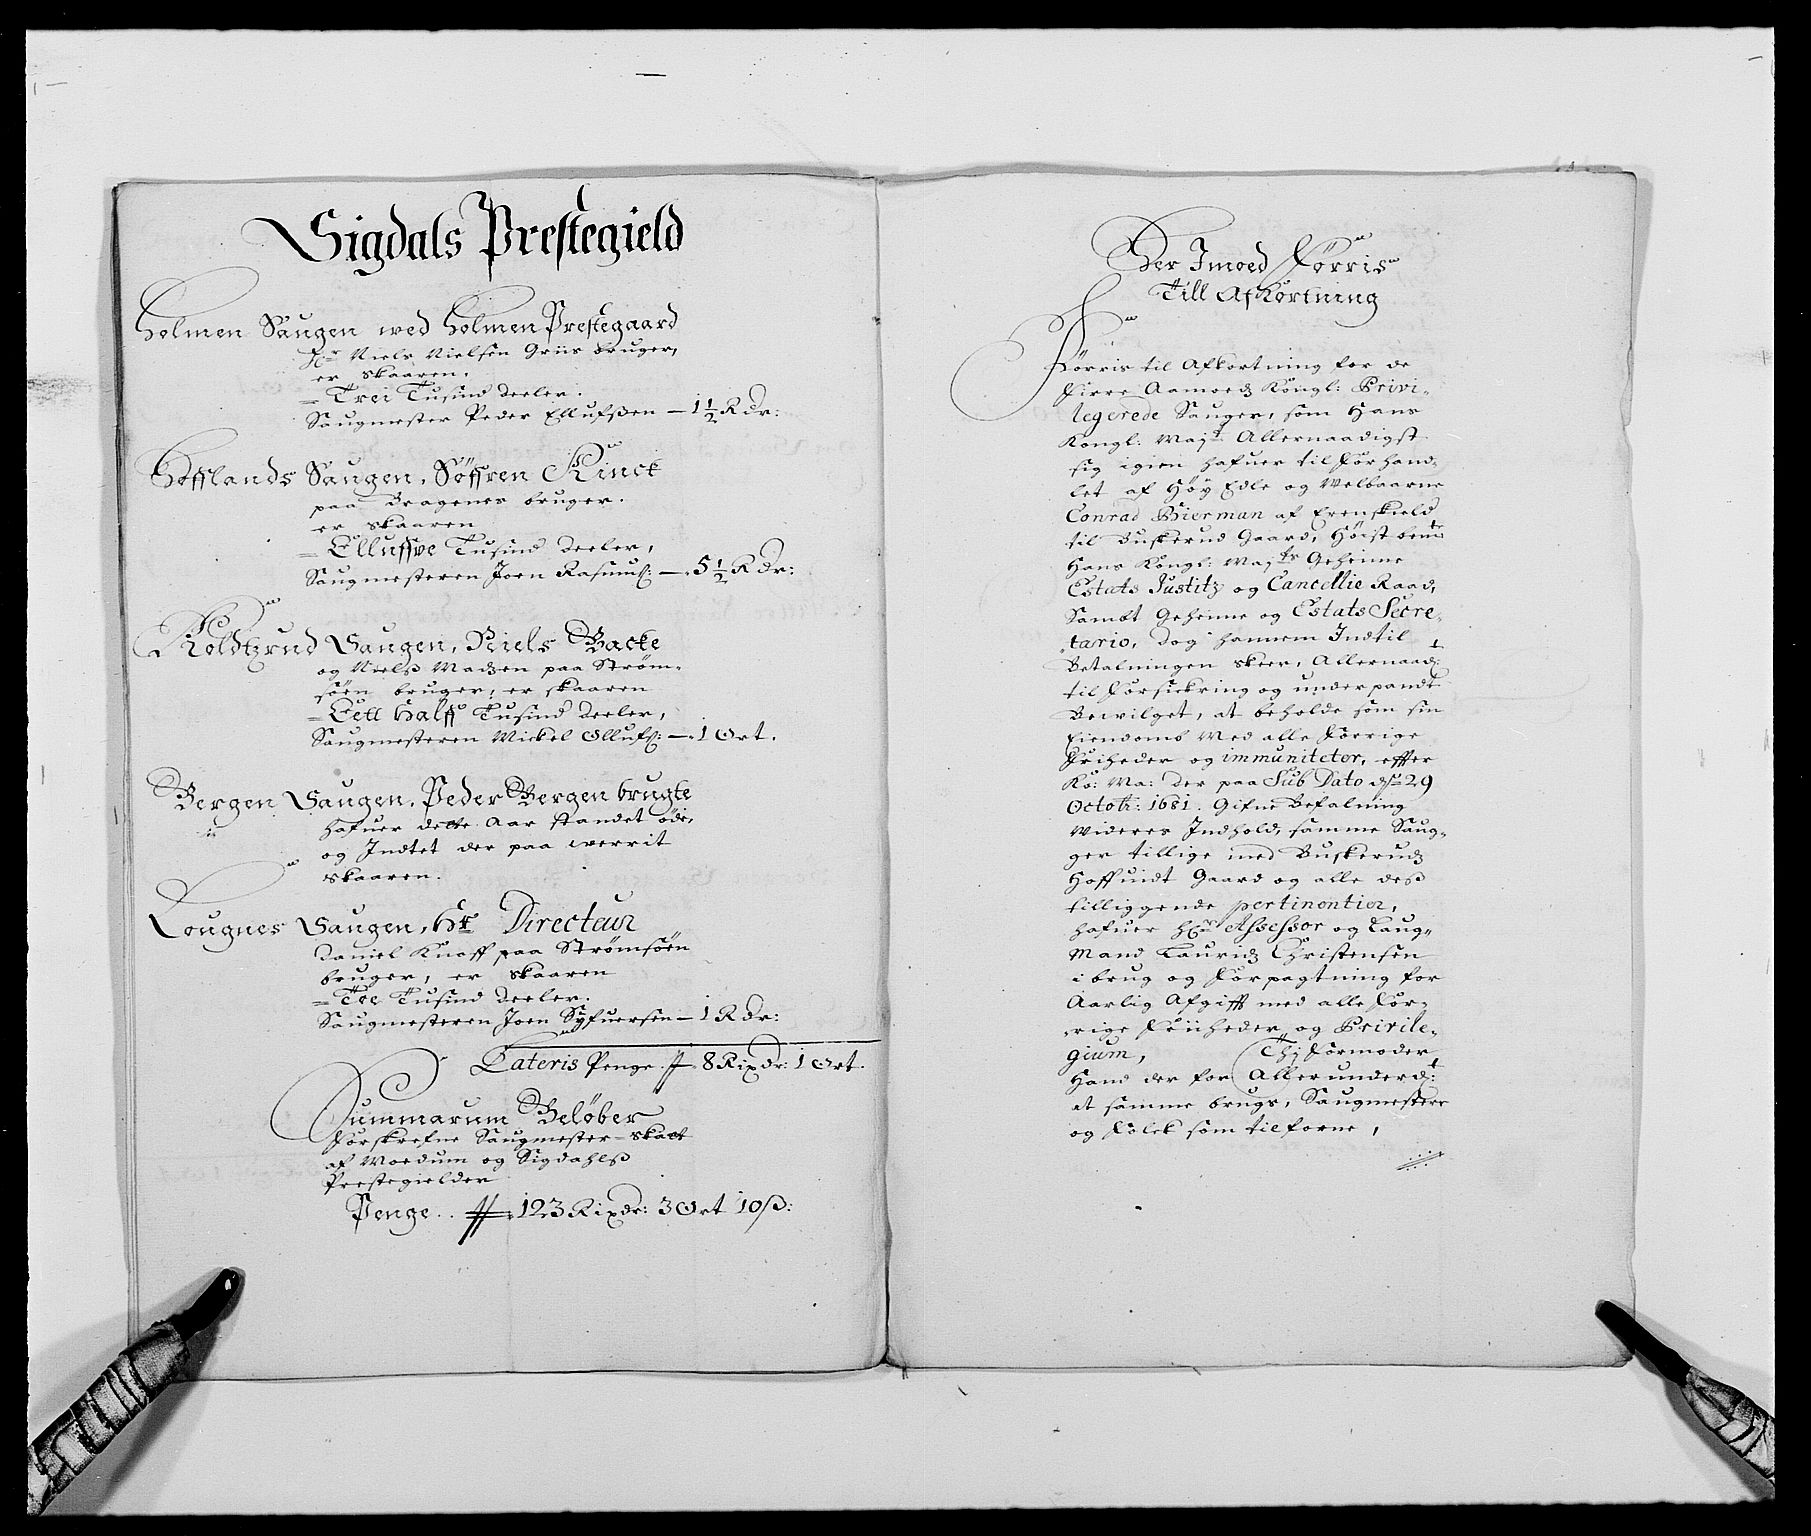 Sigdals Prestegield
Holmen Saugen wed Holmen Prestegaard
Hr Niels Nielsen Griis bruger,
er skaaren,
= Trei Tusind Deeler.
Saugmester Peder Ellufßen — 1½ R dr:
Hofflands Saugen, Söffren Rinct
paa Bragenes bruger.
er skaaren
= Elluffve Tusind Deeler,
Saugmesteren Joen Rasmuß: — 5½ R dr:
Koldtzrud Saugen, Niels Backe
og Nielß Madzen paa Ström-
söen bruger, er skaaren
= Eett Halff Tusind Deeler,
Saugmesteren Mickel Ollufß: — 1 Ort.
Bergen Saugen, Peder Bergen brugte
hafuer dette Aar standet öde,
og Indtet der paa werrit
skaaren.
Lougnes Saugen, Hr Directeur
Daniel Knoff paa Strömsöen
bruger, er skaaren
= Toe Tusind Deeler.
Saugmesteren Joen Syfuersen — 1 R dr:
Lateris Penge 8 Rixdr: 1 Ort.
Summarum Belöber
Forskrefne Saugmester-Skatt
af Moedum og Sigdahlß
Prestegielder
Penge .. 123 Rixdr: 3 Ort 10 ß:
Der Imoed Förris
Till Afkortning
Förris til Afkortning for de
Firre Aamoedz Kongl: Privi-
legerede Sauger, som Hans
Kongl: Mayt Allernaadigst
sig igien hafuer til forhand-
let af Höy Edle og Welbaarne
Conrad Bierman af Erenskield
til Buskerud Gaard, Höist bemte
Hans Kongl: Mayts Geheime
Estats Justitz og Cancellie Raad,
Sambt Geheime og Estats Secre-
tario, dog hannem Indtil
Betalningen skeer, Allernaadt:
til Forsickring og underpandt
Bewilget, at beholde som sin
Eiendomb med alle Förrige
Friheder og immuniteter, effter
Ko: Ma: der paa Sub Dato den 29
Octob: 1681. Gifne Befalning
Wideres Indhold, samme Saug-
ger tillige med Buskerudz
Hoffuidt Gaard og alle deß
tilliggende pertinentier,
hafuer Hr Assessor og Laug-
mand Lauridz Christensen
i brug og Forpagtning for
Aarlig Afgifft med alle For-
rige Friiheder og Privile-
gium, Thj formoder
Hand der for Allerunderdt:
at samme brugs, Saugmestere
og Folck som tilforne,